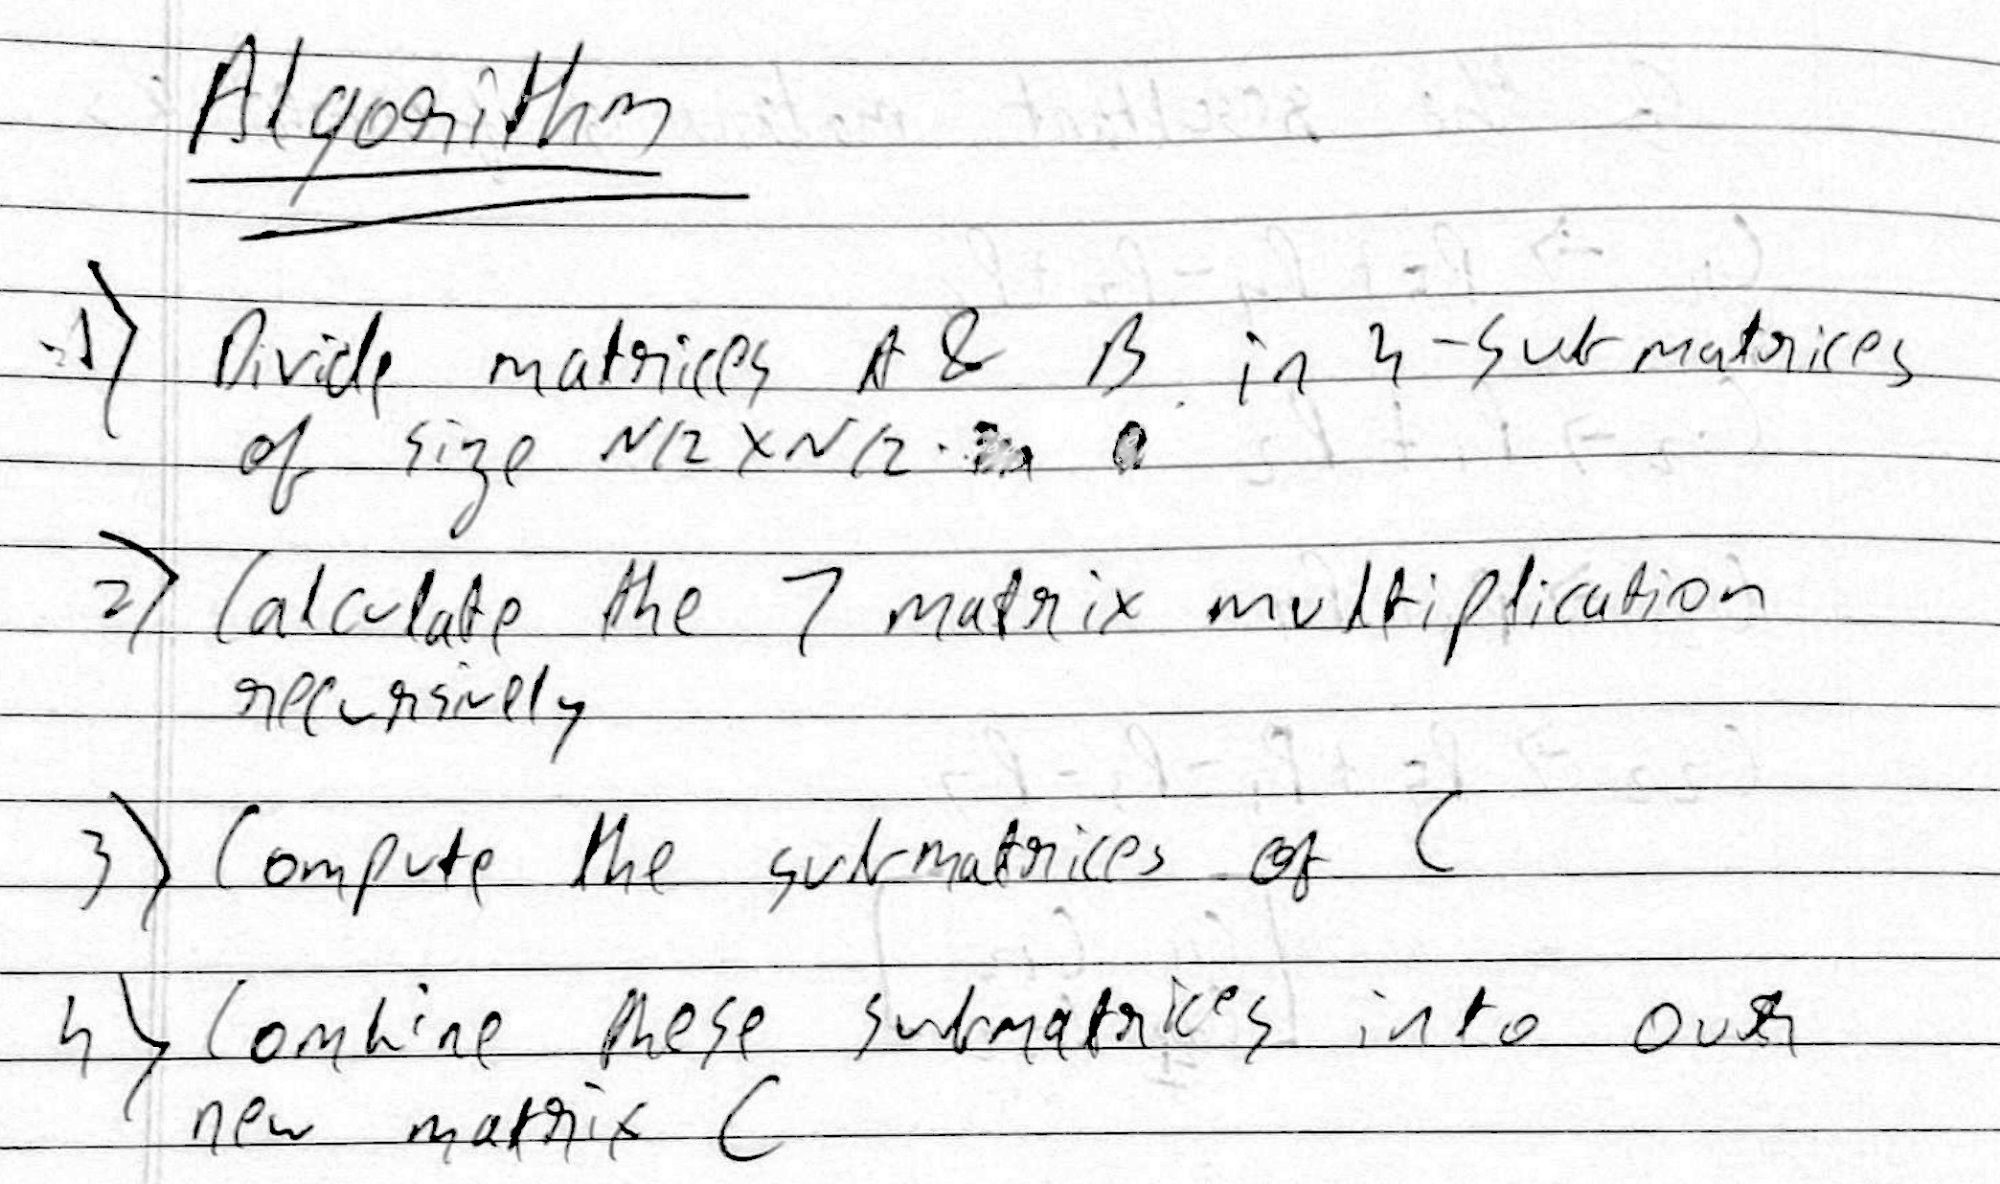 Algorithm
1) Divide matrices A & B in 4-submatrices
of size N/2 x N/2.
2) Calculate the 7 matrix multiplication
recursively
3) Compute the submatrices of C
4) Combine these submatrices into our
new matrix C